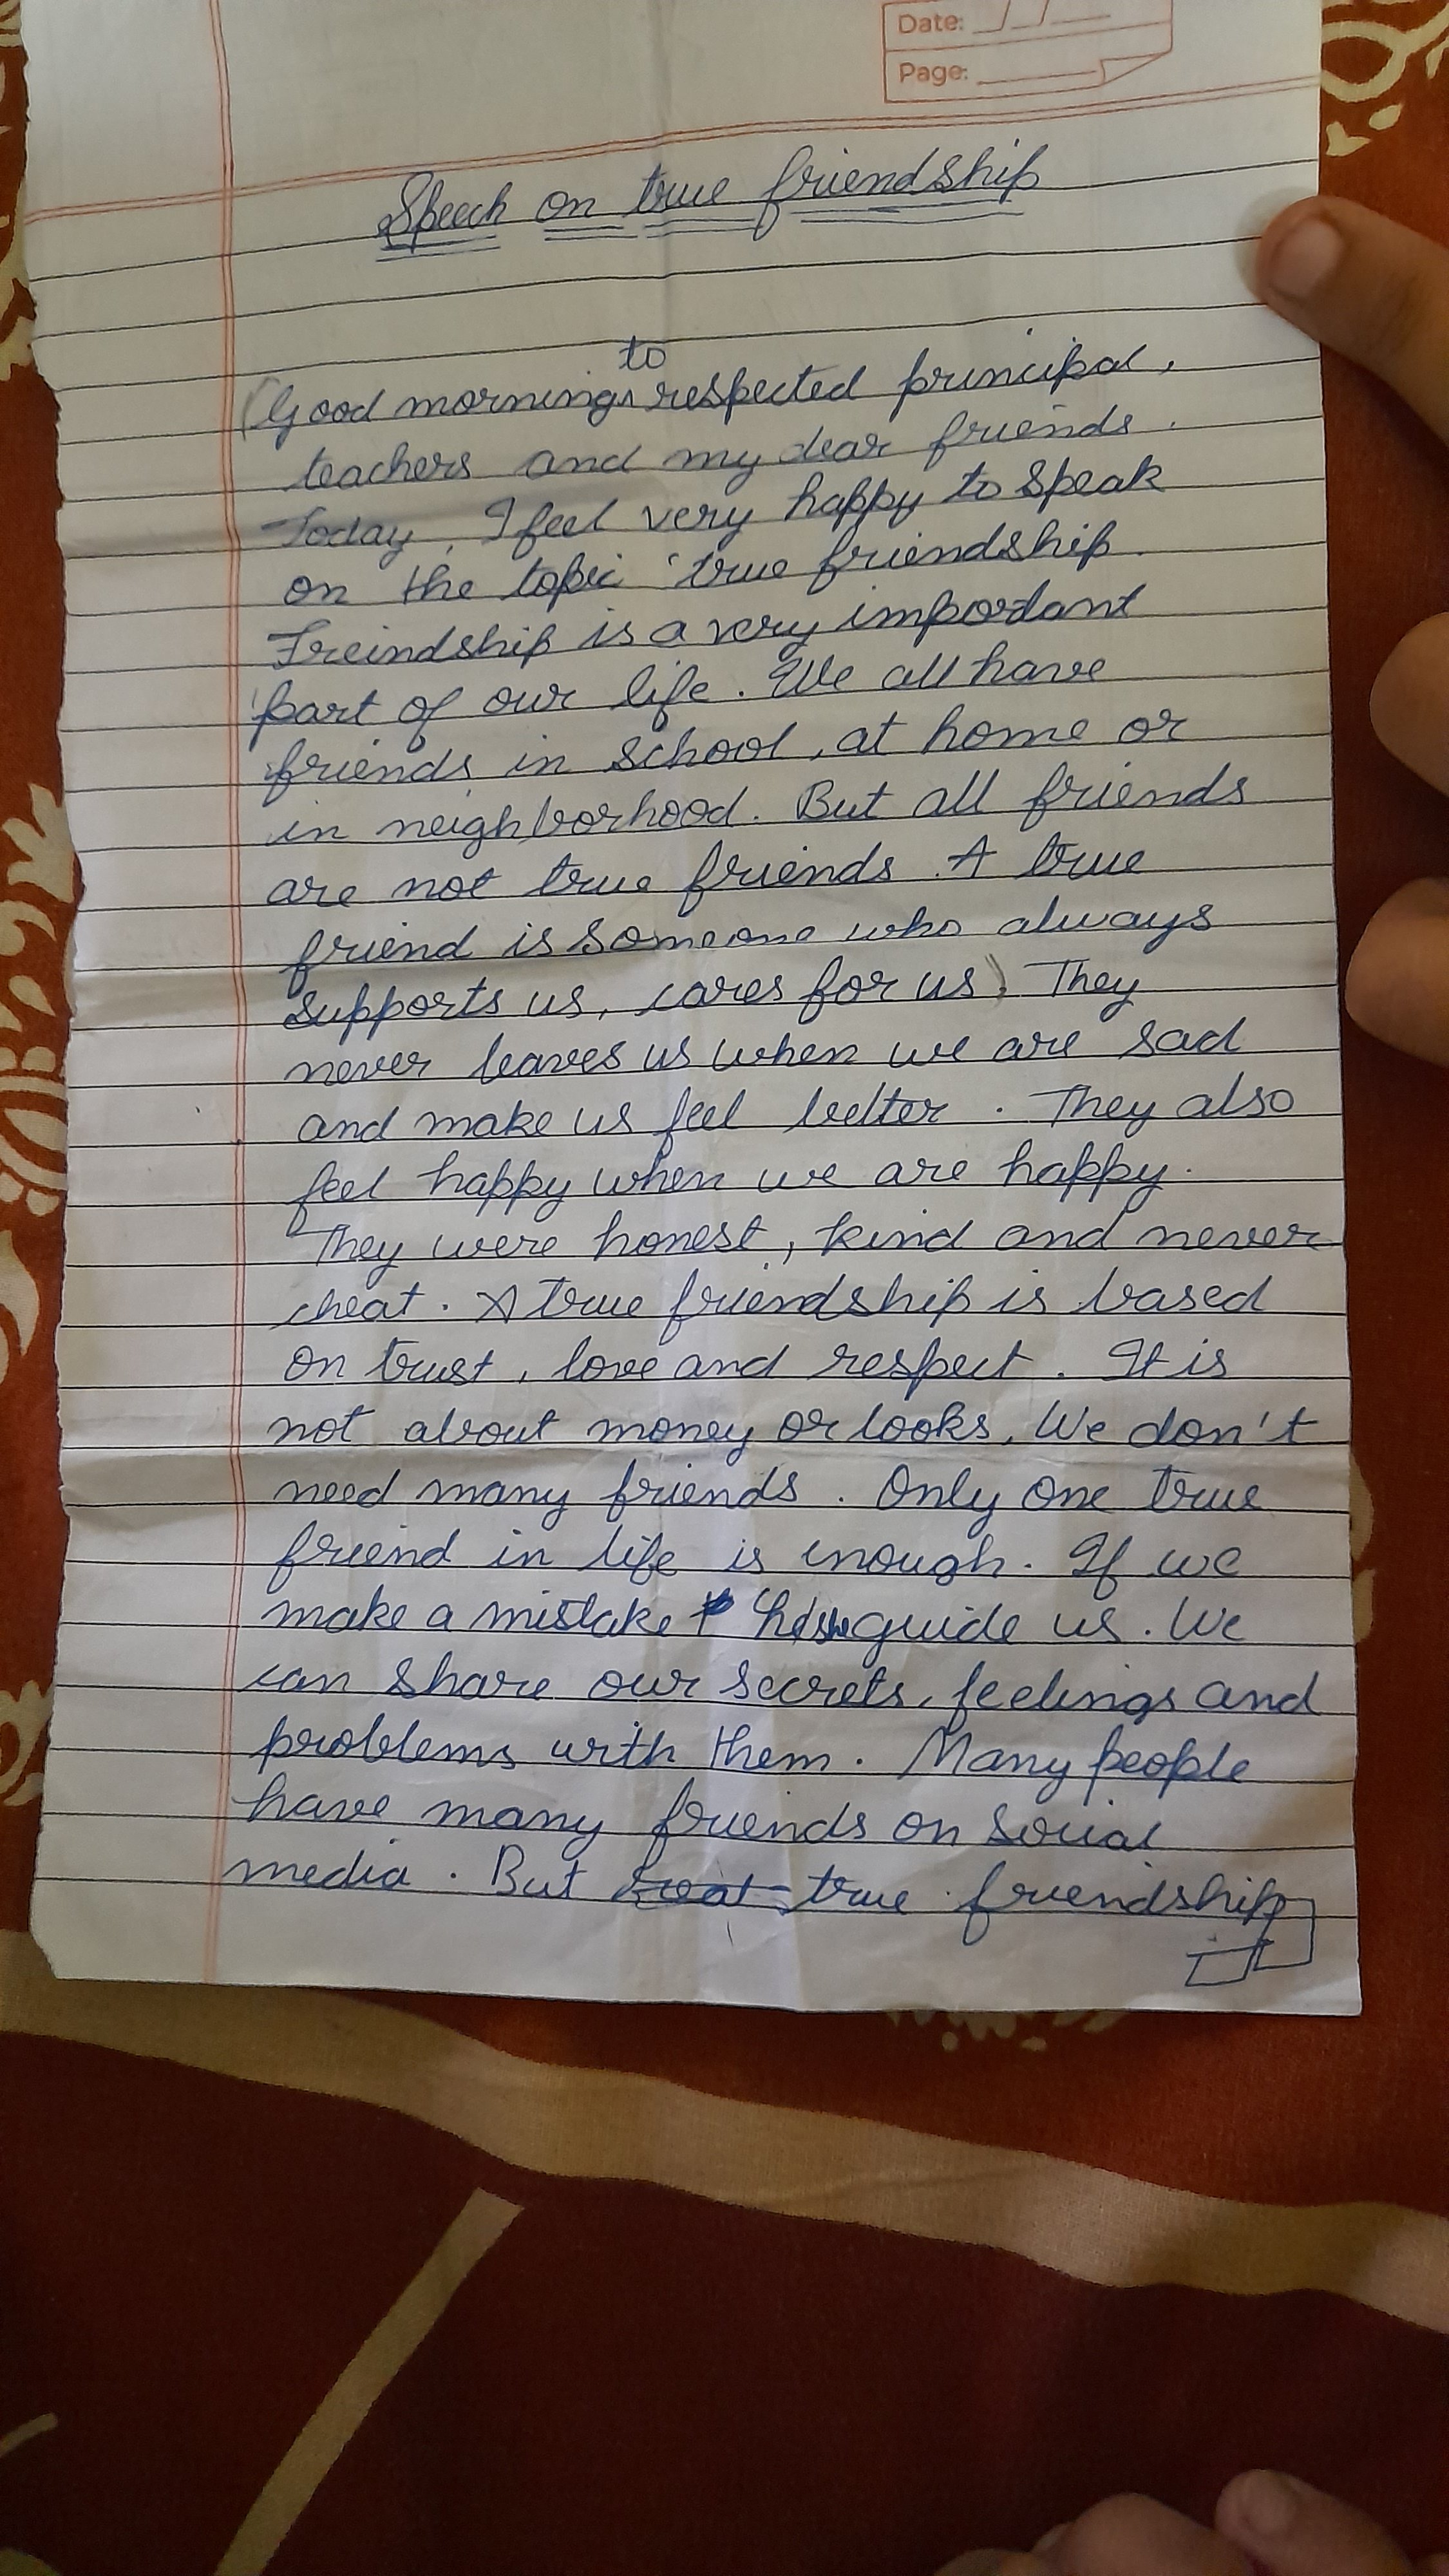 Date: __/__/__
Page: ______
Speech on true friendship
to
Good morning respected principal,
teachers and my dear friends.
Today, I feel very happy to speak
on the topic 'true friendship.
Freindship is a very important
part of our life. We all have
friends in school, at home or
in neighborhood. But all friends
are not true friends. A true
friend is someone who always
supports us, cares for us. They
never leaves us when we are sad
and make us feel better. They also
feel happy when we are happy.
They were honest, kind and never
cheat. A true friendship is based
on trust, love and respect. It is
not about money or looks. We don't
need many friends. Only one true
friend in life is enough. If we
make a mistake guide us. We
can share our secrets, feelings and
problems with them. Many people
have many friends on social
media. But true friendship